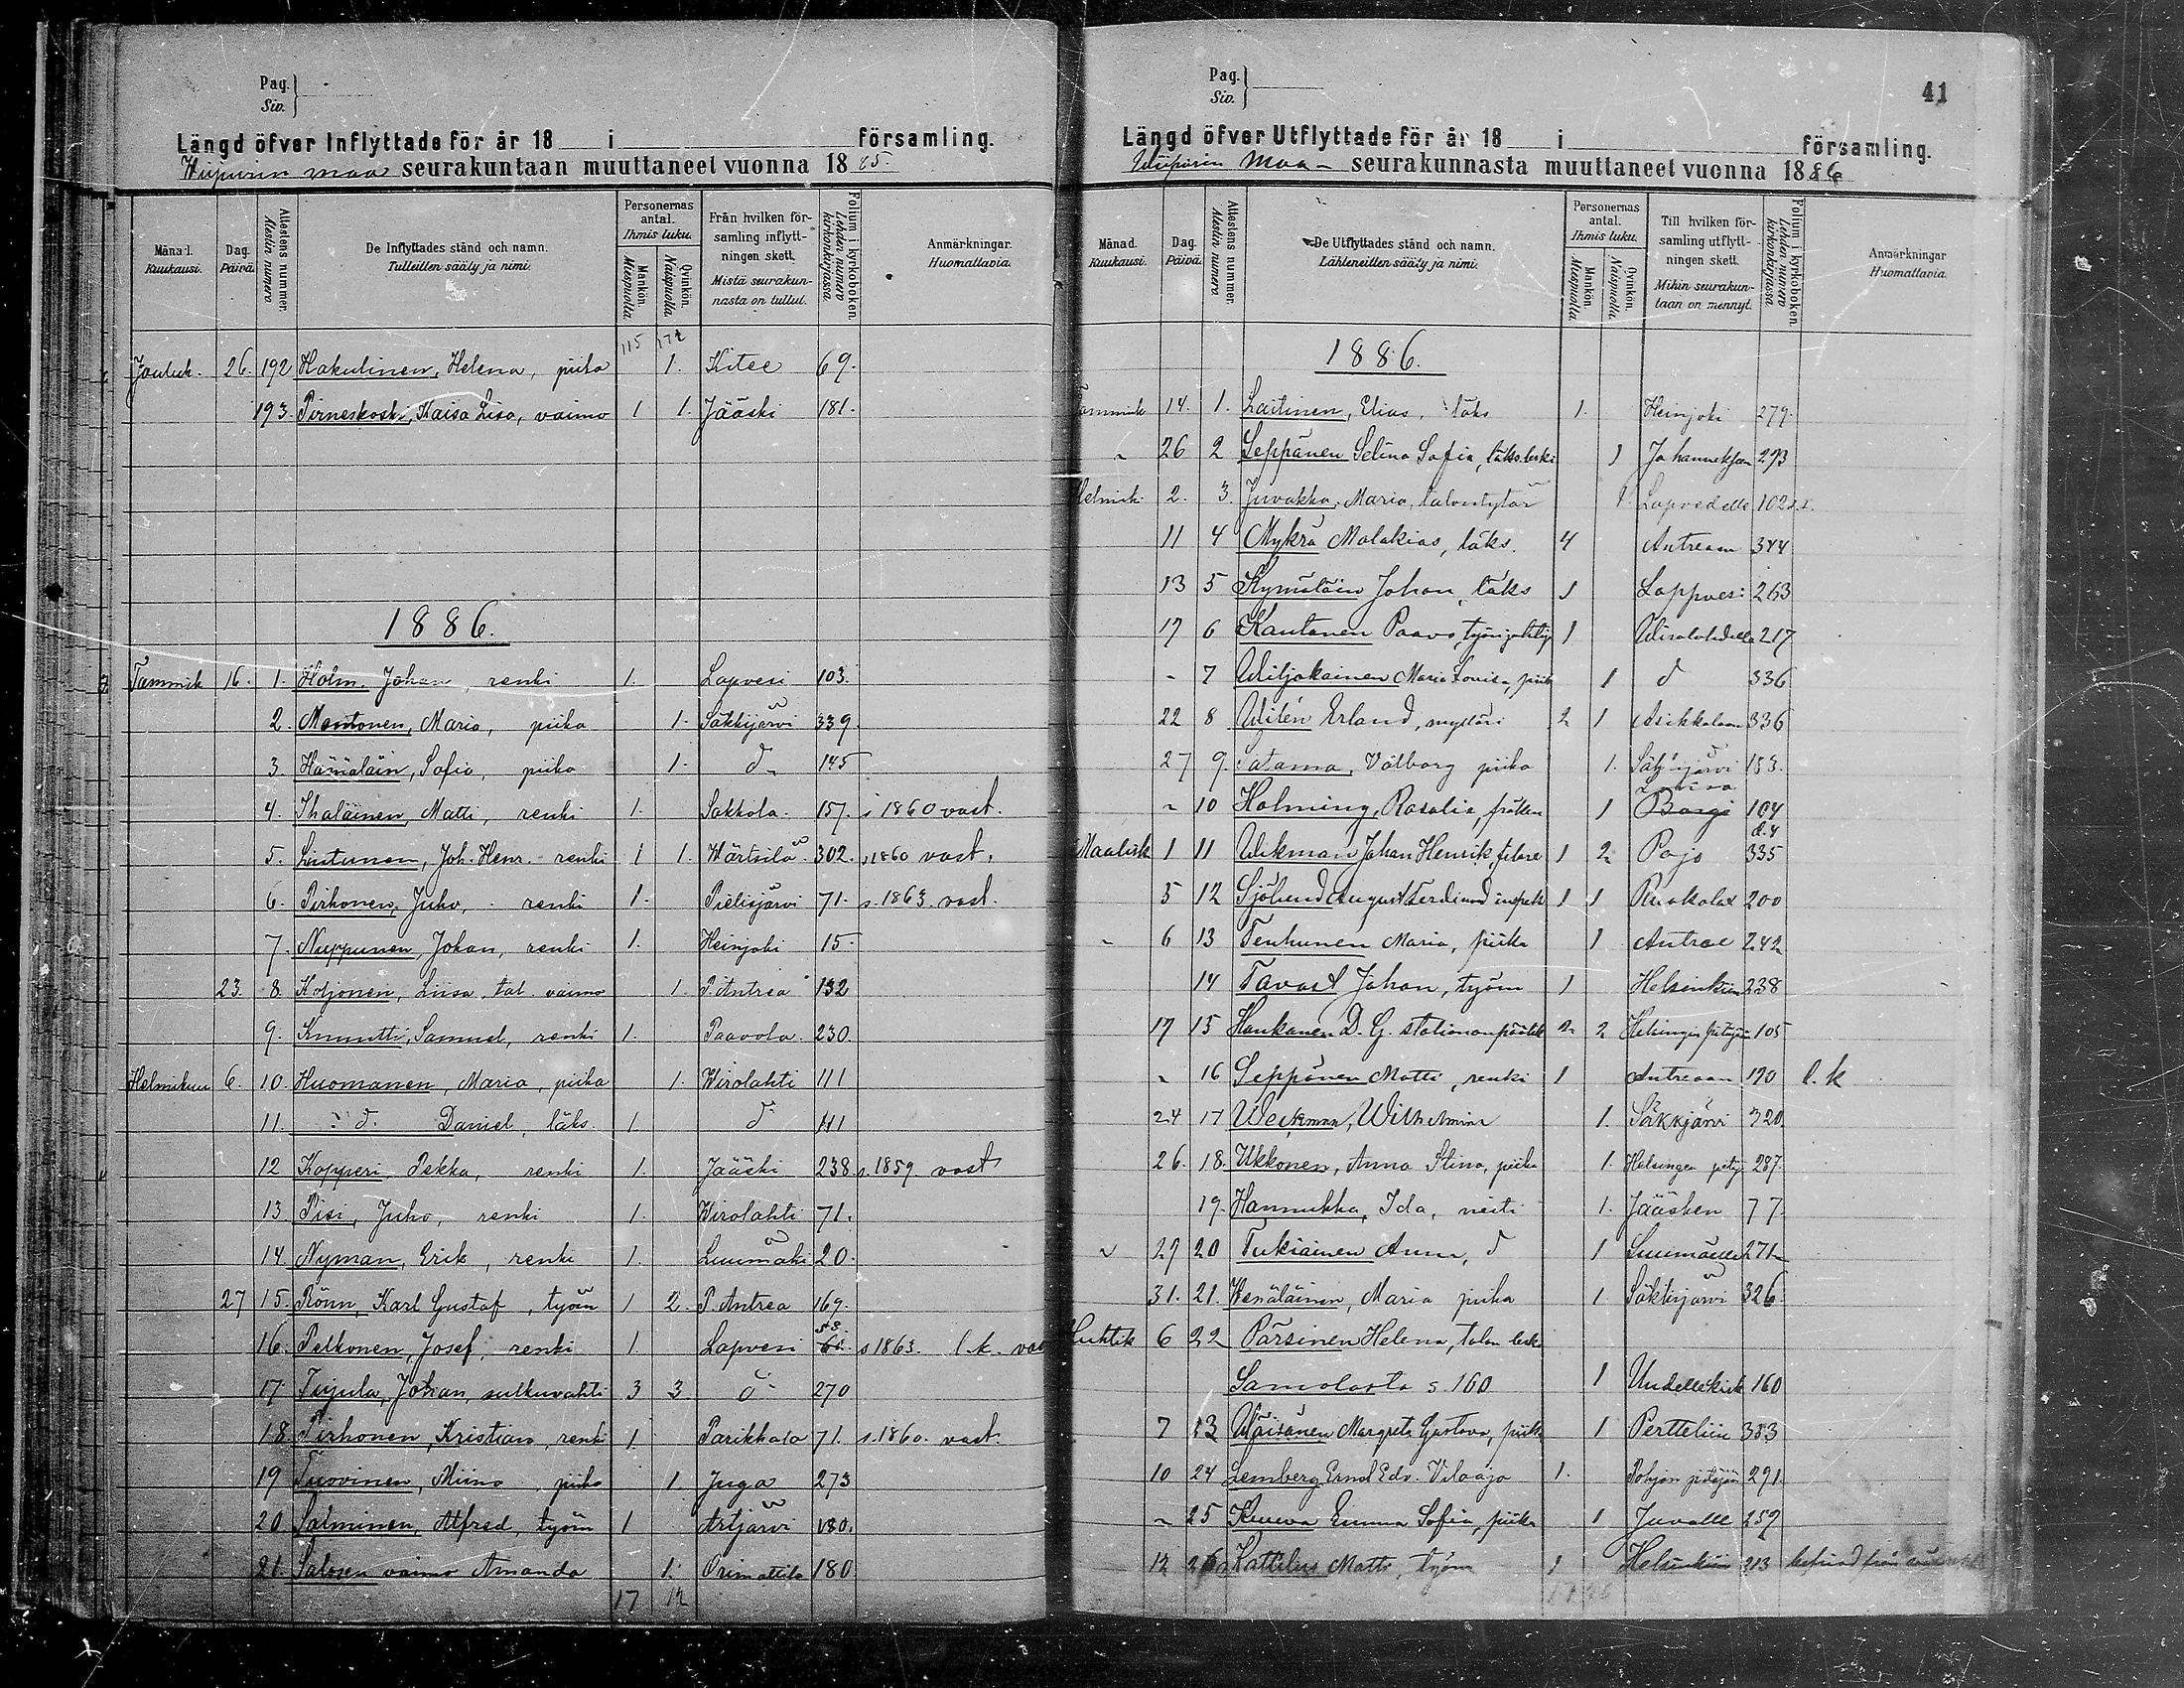 Pag.
Siv.
Längd öfver Inflyttade för år 18 i församling.
Wiipurin maa seurakuntaan muuttaneet vuonna 1885
Månad. Kuukausi.
Dag. Päivä.
Attestens nummer. Alestin numero
De Inflyttades stånd och namn. Tulleitten sääty ja nimi.
Personernas antal. Ihmis luku.
Mankön. Miespuolia
Qvinkön. Naispuolia
Från hvilken församling inflyttningen skett. Mistä seurakunnasta on tullut.
Folium i kyrkoboken. Lehden numero kirkonkirjassa.
Anmärkningar. Huomattavia.
115 172
Jouluk. 26. 192 Hakulinen, Helena, piika 1. Kitee 69.
193. Pirneskoski, Kaisa Lisa, vaimo 1 1. Jääski 181.
1886.
Tammik 16. 1. Holm, Johan, renki 1. Lapvesi 103.
2. Mentonen, Maria, piika 1. Säkkijärvi 339.
3. Hämäläin, Sofia, piika 1. d 145
4. Ihalainen, Matti, renki 1. Sakkola. 157. s 1860 vast.
5. Lintunen, Joh. Henr. renki 1 1. Wärtsilä 302. s 1860 vast.
6. Pirhonen, Juho, renki 1. Pielisjärvi 71. s. 1863. vast.
7. Nuppunen Johan, renki 1. Heinjoki 15.
23. 8. Koljonen, Liisa, tal. vaimo 1. P. Antrea 132
9. Knuutti, Samuel, renki 1. Paavola. 230.
Helmikuu 6. 10. Huomanen, Maria, piika 1. Wirolahti 111
11. d. Daniel, läks. 1. d 111
12 Kopperi Pekka, renki 1. Jääski 238. s. 1859. vast
13 Pisi, Juho, renki 1. Wirolahti 71.
14. Nyman, Erik, renki 1. Luumäki 20.
27 15. Rönn, Karl Gustaf, työm 1 2. P. Antrea 169.
58.
16. Pelkonen, Josef, renki 1. Lapvesi s 1863. l.k.
17 Tujula, Johan, sulkuvahti 3 3. d 270
18. Pirhonen, Kristian, renki 1. Parikkala 71. s. 1860. vast.
19 Tuovinen, Miina, piika 1. Juga 273
20 Salminen, Alfred, työm 1 Artjärvi 180.
21. Salosen vaimo Amanda 1. Orimattila 180
17 12
Pag.
Siv.
41
Längd öfver Utflyttade för år 18 i församling.
Wiipurin Maa- seurakunnasta muuttaneet vuonna 1886
Månad. Kuukausi.
Dag. Päivä.
Attestens nummer. Alestin numero
De Utflyttades stånd och namn. Lähteneitten sääty ja nimi.
Personernas antal. Ihmis luku.
Mankön. Miespuolia
Qvinkön. Naispuolia
Till hvilken församling utflyttningen skett. Mihin seurakuntaan on mennyt.
Folium i kyrkoboken. Lehden numero kirkonkirjassa.
Anmärkningar Huomattavia.
1886.
Tammik 14. 1. Laitinen, Elias, läks 1. Heinjoki 279.
26 2 Seppänen Selina Sofia, läks. leski 1 273
Helmik 2. 3. Juvakka, Maria, talontytär 1. 102
11 4 Mykrä Malakias, läks. 4 Antreaan 344
13 5 Kymäläin Johan, läks 1 Lappvesi 263
17 6 Kautanen Paavo, 1 217
7 Wiljakainen Maria Lovisa, piika 1 d 336
22 8 Widén Erland, mylläri 2 1 Asikkalaan 336
27 9. Satama, Valborg piika 1. Säkkijärvi 183.
Lovisa
10 Holming, Rosalie, fröken 1 Borgå 104
Maalisk 1 11 Wikman Johan Henrik, 1 2 Pojo 335
5 12 Sjölund August Ferdinand inspekt 1 1 Ruokolax 200
6 13 Tenhunen Maria, piika 1 Antrae 242
14 Tavast Johan, työm 1 Helsinkiin 238
17 15 Haukanen D. G. stationspäälik 2 2 Helsingin pitäjän 105
16 Seppänen Matti, renki 1 Antreaan 190 l.k
24 17 Weckman, Wilhelmina 1. Säkkjärvi 320.
26. 18. Ukkonen, Anna Stina, piika 1. Helsingen pitäj 287.
19. Hannukka, Ida, neiti 1. Jääsken 77.
29 20 Tukiainen Anna, d 1 271
31. 21. Wenäläinen, Maria piika 1 Säkkijärvi 326.
Huhtik 6 22 Pärsinen Helena, talon leski
Samolasta s. 160 1 160
7 23 Wäisänen Margreta Gustava, piika 1 Pertteliin 383
10 24 Lemberg Ernst Edv. Viloaja 1. Pohjan pitäjän 291.
25 Emma Sofia, piika 1 Juvalle 259
12 26 Kattilus Matts, työm 1 Helsinkiin 213